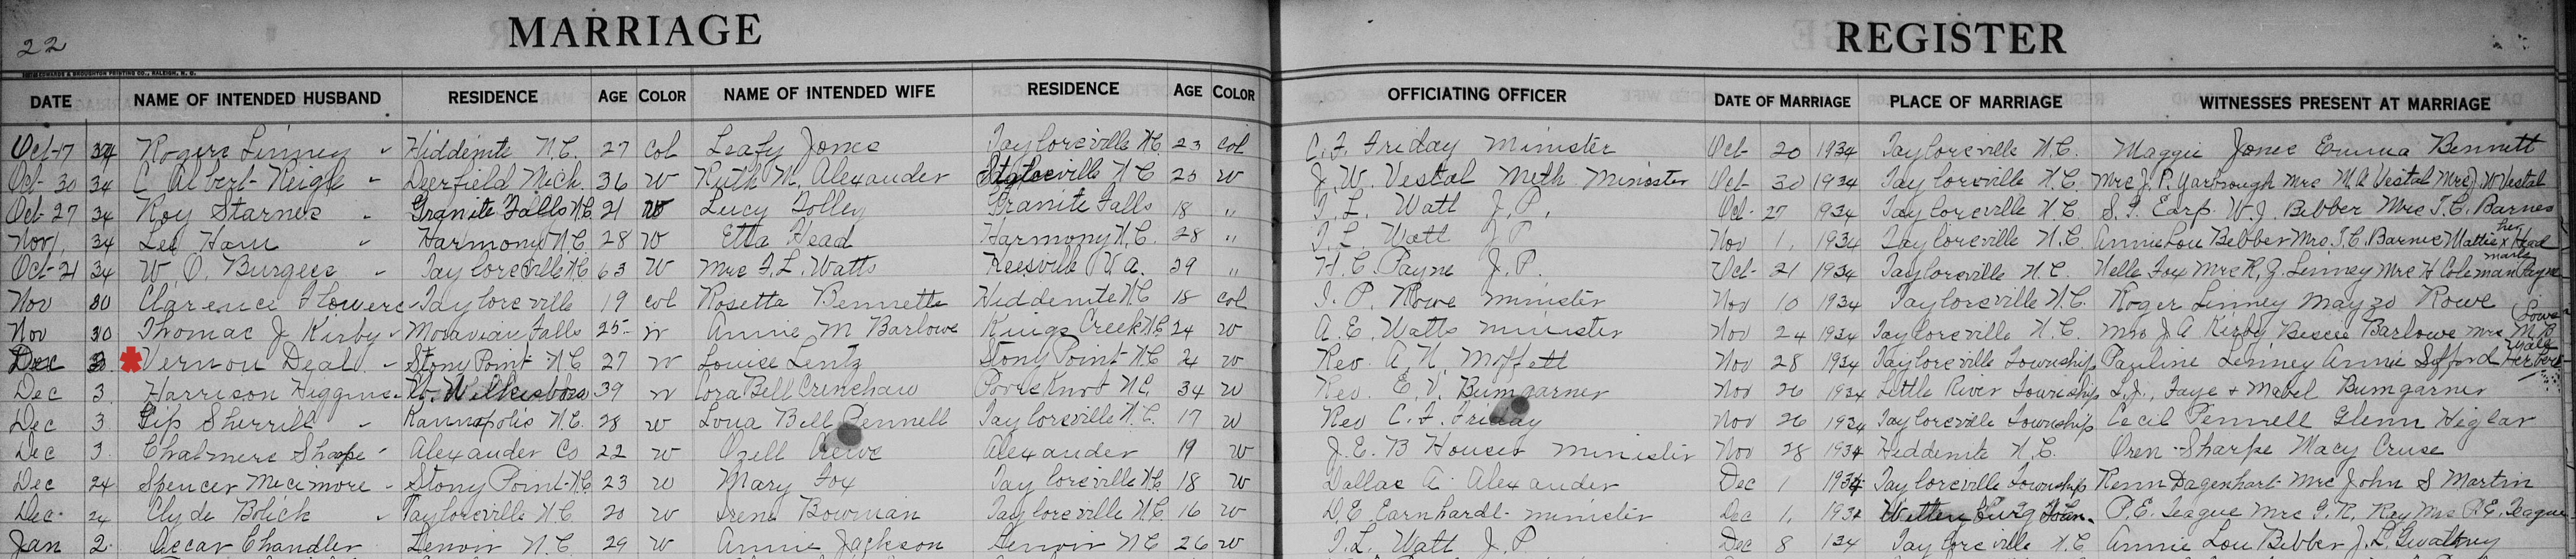 22
MARRIAGE REGISTER
DATE NAME OF INTENDED HUSBAND RESIDENCE AGE COLOR NAME OF INTENDED WIFE RESIDENCE AGE COLOR OFFICIATING OFFICER DATE OF MARRIAGE PLACE OF MARRIAGE WITNESSES PRESENT AT MARRIAGE
Oct-17 34 Rogers Linney Hiddenite N.C. 27 col Leafy Jones Taylorsville N.C. 23 col C. F. Friday Minister Oct 20 1934 Taylorsville N.C. Maggie Jones Emma Bennett
Oct 30 34 C Albert Reigle Deerfield Mich. 36 W Ruth M. Alexander Statesville N C 20 W J. W. Vestal Meth Minister Oct 30 1934 Taylorsville N.C. Mrs J. P. Yarbrough Mrs M. A Vestal Mrs J W Vestal
Oct 27 34 Roy Starnes Granite Falls N.C. 21 W Lucy Tolley Granite Falls 18 " T. L. Watt J. P. Oct 27 1934 Taylorsville N.C. S. F. Earp W. J. Bebber Mrs T. C. Barnes
Nov 1, 34 Lee Ham Harmony N.C. 28 W Etta Head Harmony N.C. 28 " T. L. Watt J P Nov 1, 1934 Taylorsville N.C. Annie Lou Bebber Mrs. T. C. Barnes Mattie x Head her mark
Oct-21 34 W. O. Burgess Taylorsville N.C. 63 W Mrs F. L. Watts Reesville V.A. 29 " H. C. Payne J. P. Oct 21 1934 Taylorsville N.C. Nelle Fox Mrs R. J. Linney Mrs H Coleman Payne
Nov 30 Clarence Flowers Taylorsville 19 col Rosetta Bennette Hiddenite N.C. 18 col I. P. Rowe Minister Nov 10 1934 Taylorsville N.C. Roger Linney Mayzo Rowe
Nov 30 Thomas J Kirby Moravian Falls 25 W Annie M Barlowe Kings Creek N.C. 24 W A. E. Watts Minister Nov 24 1934 Taylorsville N.C. Mrs J A Kirby Bessie Barlowe Mrs M. R.
Dec 3 Vernon Deal Stony Point N C 27 W Louise Lentz Stony Point N.C. 21 W Rev. A. N. Moffett Nov 28 1934 Taylorsville Township Pauline Linney Annie Sifford
Dec 3. Harrison Higgins N. Wilkesboro 39 W Cora Bell Crenshaw Pores Knob N.C. 34 W Rev. E. V. Bumgarner Nov 26 1934 Little River Township L. J., Faye + Mabel Bumgarner
Dec 3 Gip Sherrill Kannapolis N.C. 28 W Lona Bell Pennell Taylorsville N.C. 17 W Rev C. F. Friday Nov 26 1934 Taylorsville Township Cecil Pennell Glenn Heglar
Dec 3. Chalmers Sharpe Alexander Co 22 W Ozell Alexander 19 W J. E. B Houser Minister Nov 28 1934 Hiddenite N.C. Oren Sharpe Macy Cruse
Dec 24 Spencer Mecimore Stony Point N.C. 23 W Mary Fox Taylorsville N.C. 18 W Dallas A. Alexander Dec 1 1934 Taylorsville Township Renn Dagenhart Mrs John S Martin
Dec 24 Clyde Bolick Taylorsville N.C. 20 W Irene Bowman Taylorsville N.C. 16 W D. E. Earnhardt Minister Dec 1, 1934 Wittenburg Town. P. E. Teague Mrs G. R. Rey Mrs P. E. Teague
Jan 2 Oscar Chandler Lenoir N.C. 29 W Annie Jackson Lenoir N C 26 W T. L. Watt J. P Dec 8 134 Taylorsville N.C. Annie Lou Bebber J. L. Gwaltney